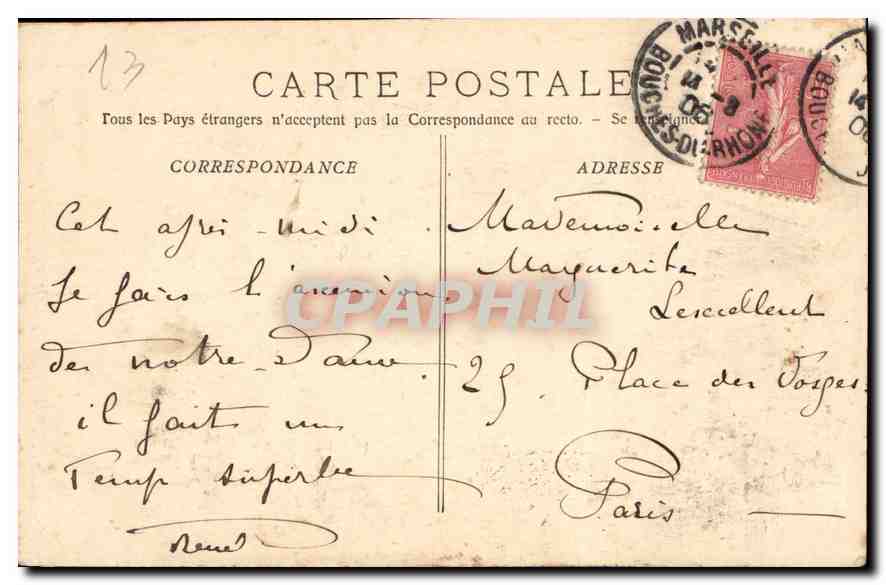 13
CARTE POSTALE
Tous les Pays étrangers n'acceptent pas la Correspondance au recto. - Se renseigner
CORRESPONDANCE
Cet après-midi
Je fais l'ascension
de notre-Dame
il fait un
Temp superbe
René
ADRESSE
Mademoiselle
Marguerite
25, Place des Vosges
Paris
MARSEILLE
14 -8
06
BOUCHES-DU-RHONE
CPAPHIL